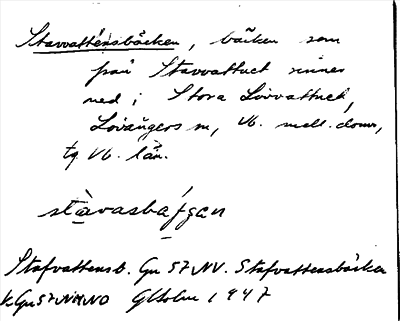 Stavvattensbäcken, bäcken som
från Stavvattnet rinner
ned i Stora Lövvattnet,
Lövångers sn, Vb. mell. doms,
tg Vb. län.
stavasbäfgan
Stafvattensb. Gn 57 NV. Stafvattensbäcken
Gn 57 NV GHolm 1947